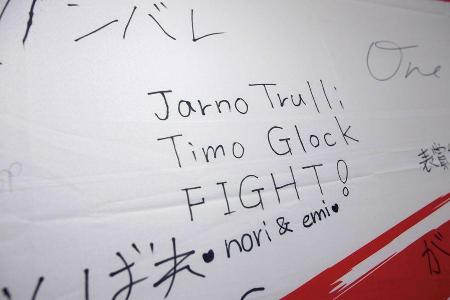 ンバレ
One
Jarno Trulli
Timo Glock
FIGHT!
ばれ♥nori & emi♥
が